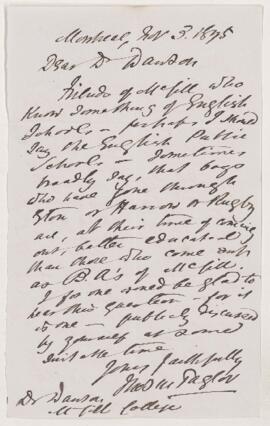 Montreal, Nov 3. 1875
Dear Dr Dawson
Friends of McGill who
know something of English
Schools – perhaps I should
say the English Public
Schools – sometimes
broadly say, that boys
who have gone through
Eton or Harrow or Rugby
are, at their time of coming
out, better educated
than those who come out
as B A's of McGill.
I for one would be glad to
hear this question – for it
is one – publicly discussed
by yourself at some
suitable time.
Yours faithfully
Taylor
Dr Dawson
McGill College